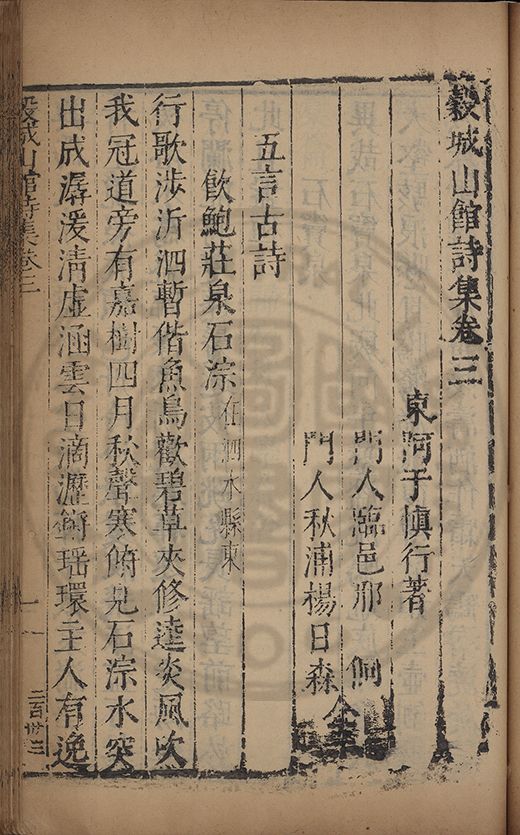 穀城山館詩集卷三
東阿于慎行著
門人臨邑邢侗
門人秋浦楊日森
仝
五言古詩
飲鮑莊泉石淙在泗水縣東
行歌涉沂泗暫偕魚鳥歡碧草夾修逵炎風吹
我冠道旁有嘉樹四月秋聲寒俯見石淙水突
出成潺湲清虛涵雲日滴瀝銜瑶環主人有逸
穀城山館詩集卷三
一
二百卅三